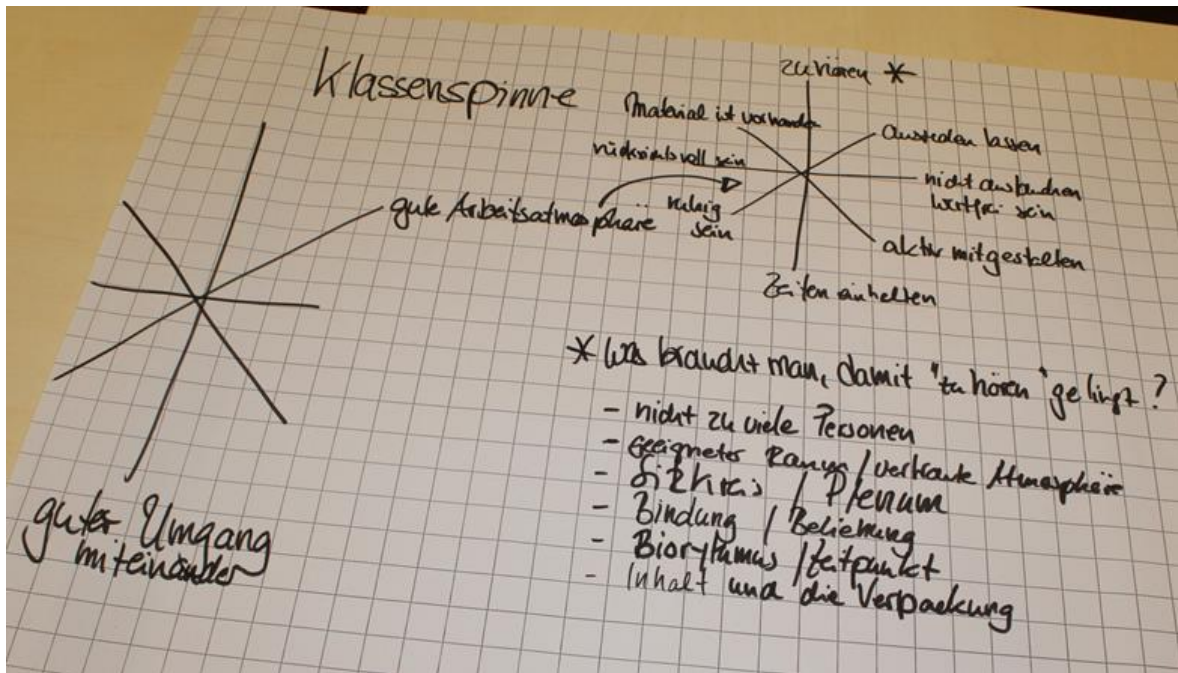 Klassenspinne
gute Arbeitsatmosphäre
guter Umgang
miteinander
zuhören *
Material ist vorhanden
ausreden lassen
rücksichtsvoll sein
nicht auslachen
wertfrei sein
ruhig
sein
aktiv mitgestalten
Zeiten einhalten
* Was braucht man, damit "zu hören" gelingt?
- nicht zu viele Personen
- geeigneter Raum / vertraute Atmosphäre
- Sitzkreis / Plenum
- Bindung / Beziehung
- Biorytmus / Zeitpunkt
- Inhalt und die Verpackung